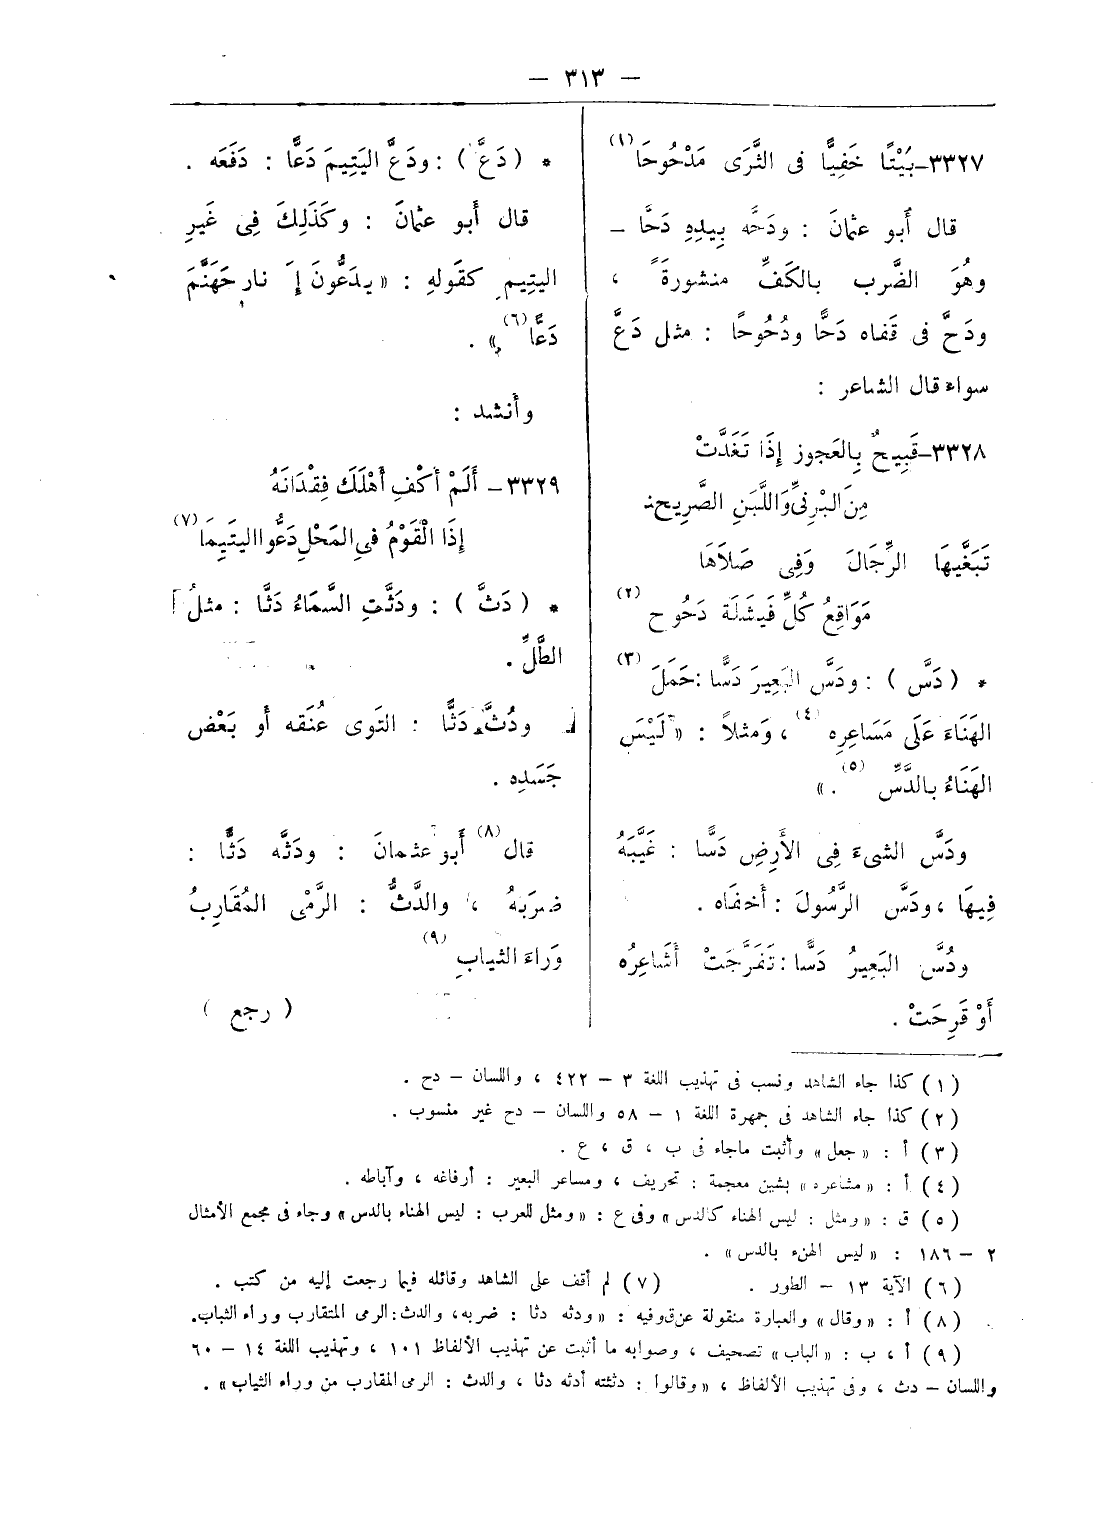 — ٣١٣ —
٣٣٢٧–بُيْتًا خَفِيًّا فى الثَّرَى مَدْحُوحَا (١)
قال أَبو عثمانَ : ودَحَّه بِيدِهِ دَحًّا –
وهُوَ الضَّرب بالكَفِّ منشورةً ،
ودَحَّ فى قَفاه دَحًّا ودُحُوحًا : مثل دَعَّ
سواء قال الشاعر :
٣٣٢٨–قَبِيحٌ بِالعَجوز إِذَا تَغَدَّتْ
مِنَ البْرنىِّ وَاللَّبَنِ الصَّرِيحِ
تَبَغِّيهَا الرِّجَالَ وَفِى صَلاَهَا
مَوَاقِعُ كُلِّ فَيشَلَة دَحُوحِ (٢)
* ( دَسَّ ) : ودَسَّ البَعِيرَ دَسًّا : حَمَلَ (٣)
الهَنَاءَ عَلَى مَسَاعِرِه (٤) ، وَمثلاً : « لَيْسَ
الهَنَاءُ بالدَّسِّ (٥) . »
ودَسَّ الشىءَ فِى الأَرِضِ دَسًّا : غَيَّبَهُ
فِيهَا ، ودَسَّ الرَّسُولَ : أَخفَاه .
ودُسَّ البَعِيرُ دَسًّا : تَفَرَّجَتْ أَشَاعِرُه
أَوْ قَرِحَتْ .
* ( دَعَّ ) : ودَعَّ اليَتِيمَ دَعًّا : دَفَعَه .
قال أَبو عثمانَ : وكَذَلِكَ فِى غَيرِ
اليتِيم كقَولهِ : « يدَعُّونَ إِ نار جَهَنَّمَ
دَعًّا (٦) » .
وأَنشد :
٣٣٢٩– أَلَمْ أَكْفِ أَهْلَكَ فِقْدَانَهُ
إِذَا الْقَوْمُ فىِ المَحْلِ دَعُّوا اليَتِيمَا (٧)
* ( دَثَّ ) : ودَثَّتِ السَّمَاءُ دَثًّا : مثلُ
الطَّلِّ .
ودُثَّ دَثًّا : التَوى عُنَقه أَو بَعْض
جَسَدِه .
قال (٨) أَبو عثمانَ : ودَثَّه دَثًّا :
ضرَبَهُ ، والدَّثُّ : الرَّمْى المُقَارِبُ
وَراءَ الثيابِ (٩)
( رجع )
(١) كذا جاء الشاهد ونسب فى تهذيب اللغة ٣ – ٤٢٢ ، واللسان – دح .
(٢) كذا جاء الشاهد فى جمهرة اللغة ١ – ٥٨ واللسان – دح غير منسوب .
(٣) أ : « جعل » وأثبت ماجاء فى ب ، ق ، ع .
(٤) أ : « مشاعره » بشين معجمة : تحريف ، ومساعر البعير : أرفاغه ، وآباطه .
(٥) ق : « ومثل : ليس الهناء كالدس » وفى ع : « ومثل للعرب : ليس الهناء بالدس » وجاء فى مجمع الأمثال
٢ – ١٨٦ : « ليس الهنء بالدس » .
(٦) الآية ١٣ – الطور . (٧) لم أقف على الشاهد وقائله فيما رجعت إليه من كتب .
(٨) أ : « وقال » والعبارة منقولة عن ق وفيه : « ودثه دثا : ضربه ، والدث : الرمى المتقارب وراء الثياب .
(٩) أ ، ب : « الباب » تصحيف ، وصوابه ما أثبت عن تهذيب الألفاظ ١٠١ ، وتهذيب اللغة ١٤ – ٦٠
واللسان – دث ، وفى تهذيب الألفاظ ، « وقالوا : دثثته أدثه دثا ، والدث : الرمى المقارب من وراء الثياب » .